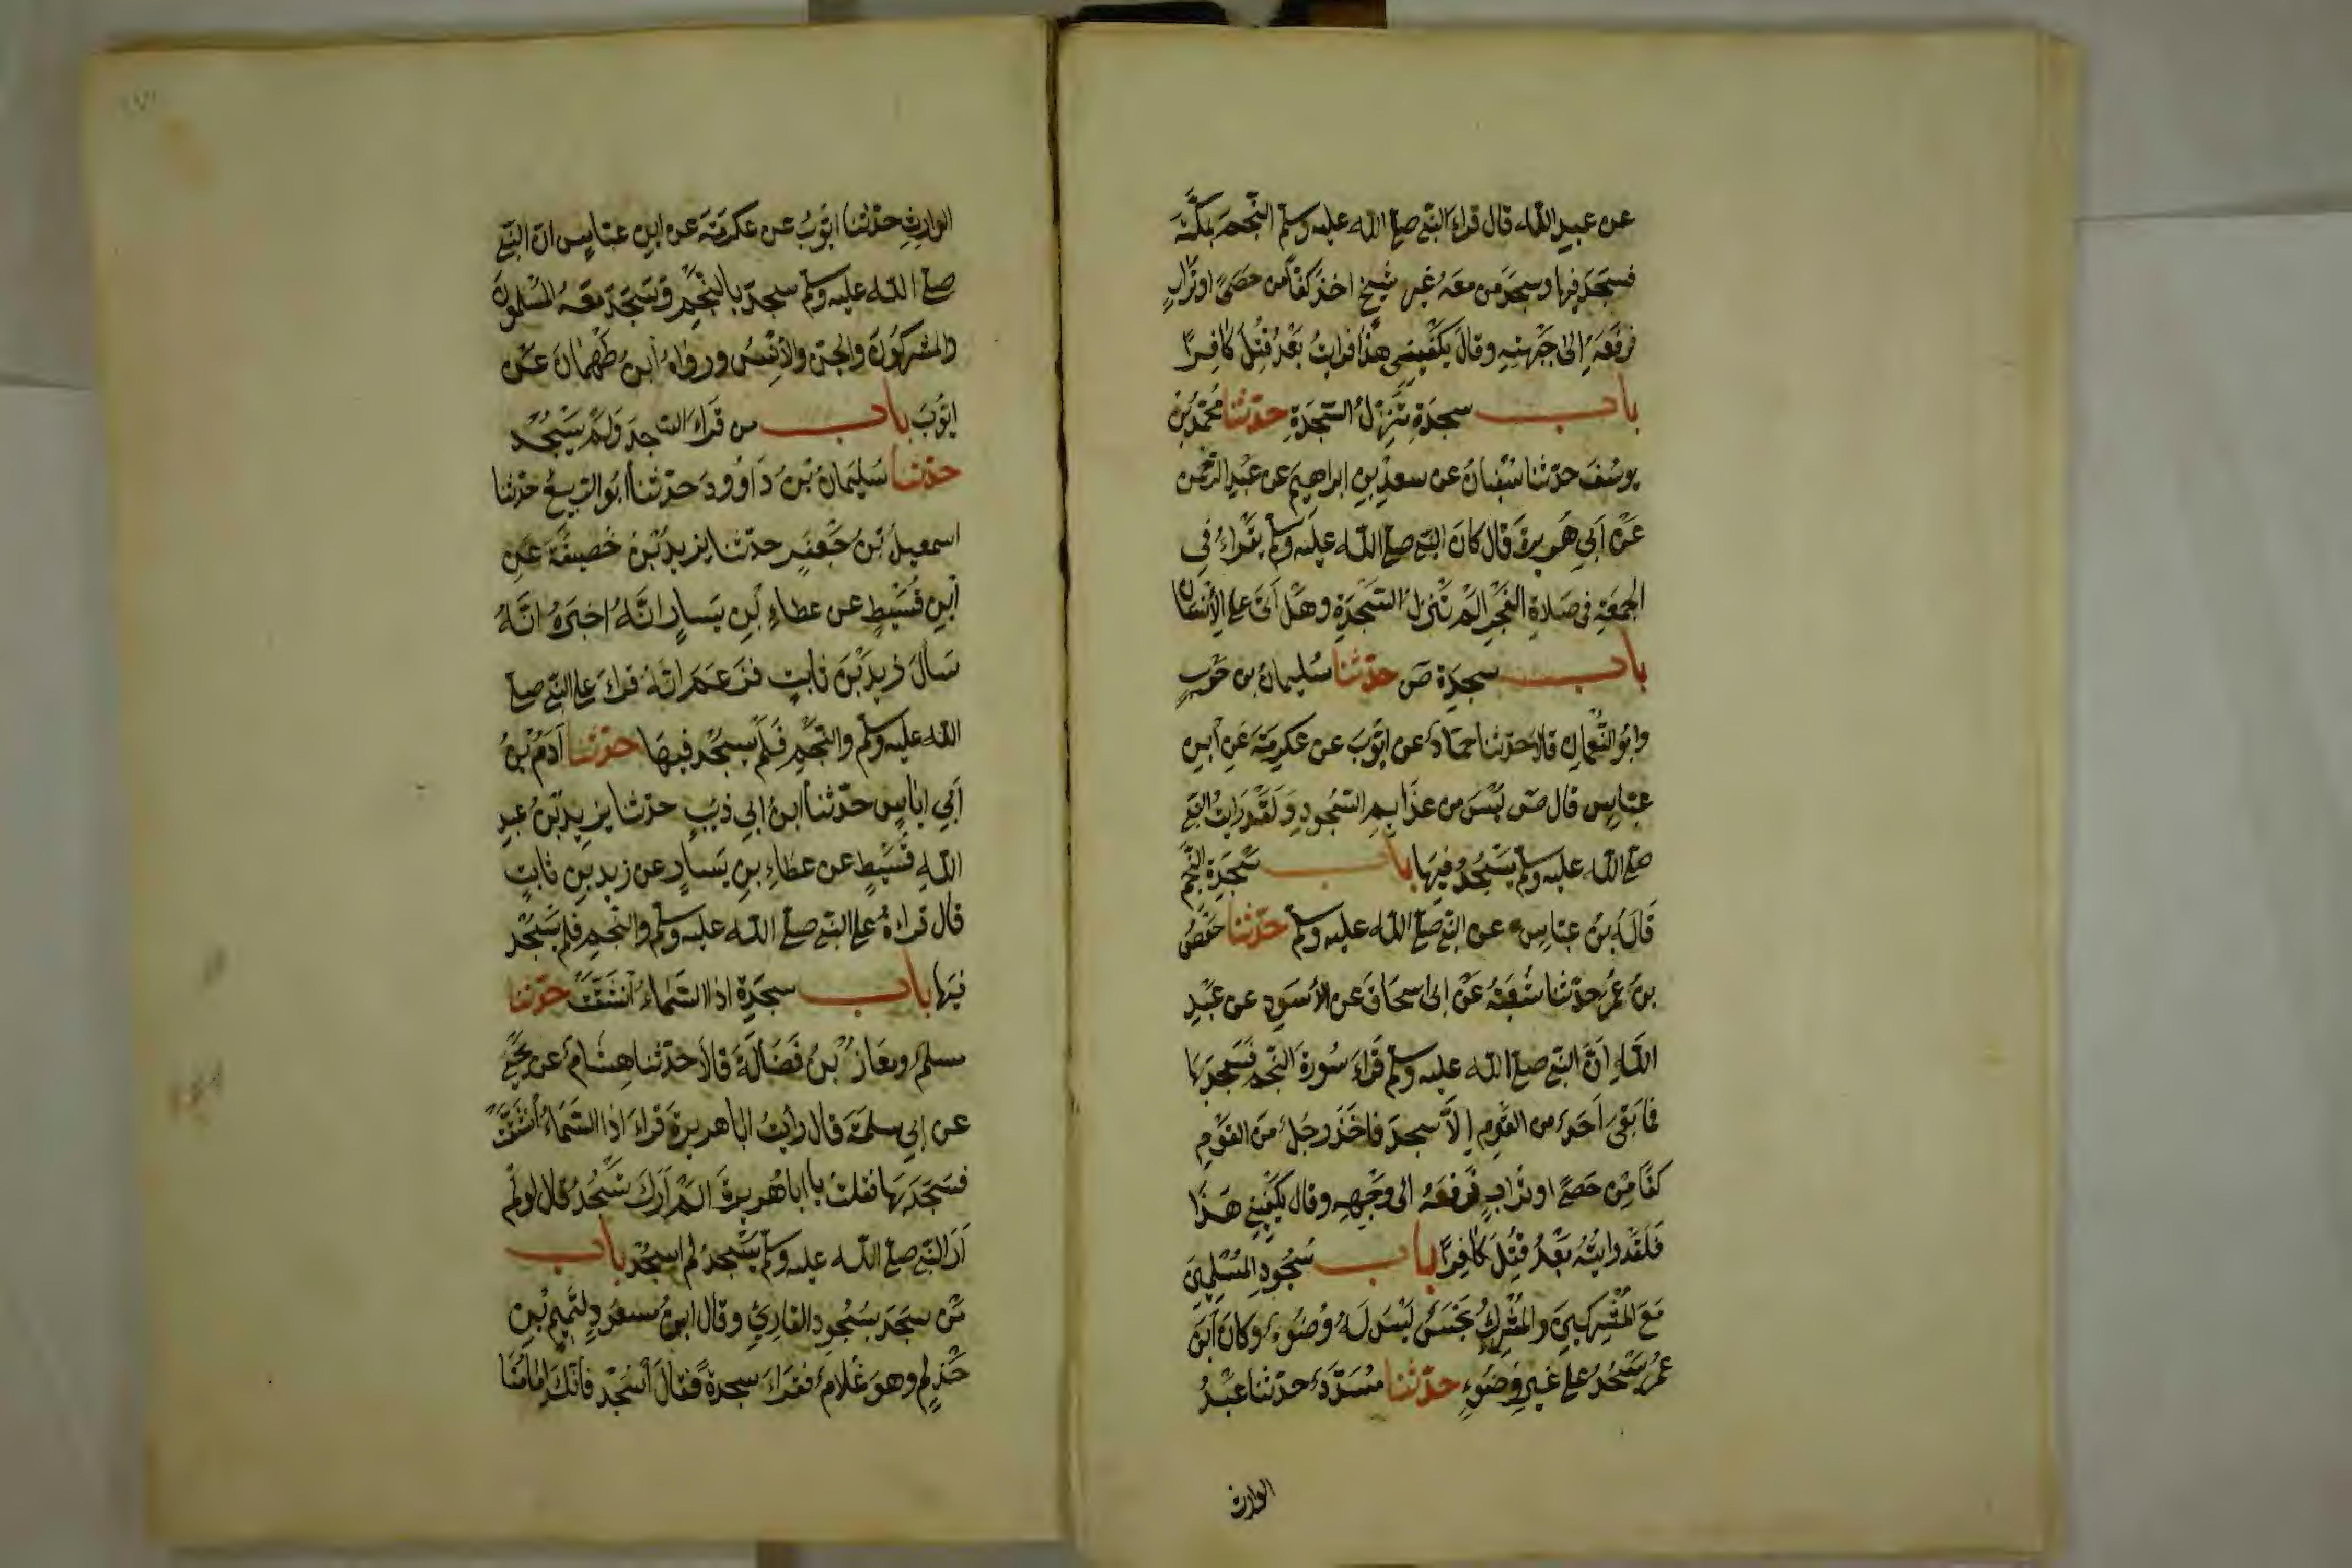 عن عبيد الله قال قراء النبي صلي الله عليه وسلم النجم بمكة
فسجد فيها وسجد من معه غير شيخ اخذ كفا من حصى او تراب
فرفعه إلى جبهته وقال يكفيني هذا فرايت بعد قتل كافرا
باب سجدة تنزل السجدة حدثنا محمد بن
يوسف حدثنا سفيان عن سعد بن ابراهيم عن عبد الرحمن
عن أبي هريرة قال كان النبي صلي الله عليه وسلم يقراء في
الجمعة في صلاة الفجر الم تنزل السجدة وهل أتى على الإنسان
باب سجدة ص حدثنا سليمان بن حرب
وابو النعمان قالا حدثنا حماد عن ايوب عن عكرمة عن ابن
عباس قال ص ليس من عذايم السجود ولقد رايت النبي
صلي الله عليه وسلم يسجد فيها باب سجدة النجم
قاله بن عباس عن النبي صلي الله عليه وسلم حدثنا حفص
بن عمر حدثنا شعبة عن ابى اسحاق عن الأسود عن عبد
الله أن النبي صلي الله عليه وسلم قراء سورة النجم فسجد بها
فما بقى احد من القوم إلا سجد فاخذ رجل من القوم
كفا من حصى او تراب فرفعه الى وجهه وقال يكفيني هذا
فلقد رايته بعد قتل كافرا باب سجود المسلمين
مع المشركين والمشرك نجس ليس له وضوء وكان ابن
عمر يسجد على غير وضوء حدثنا مسدد حدثنا عبد
الوارث
الوارث حدثنا ايوب عن عكرمة عن ابن عباس ان النبي
صلي الله عليه وسلم سجد بالنجم وسجد معه المسلمون
والمشركون والجن والإنس ورواه ابن طهمان عن
ايوب باب من قراء السجد ولم يسجد
حدثنا سليمان بن داوود حدثنا ابو الربيع حدثنا
اسمعيل بن جعفر حدثنا يزيد بن خصيفة عن
ابن قسيط عن عطاء بن يسار انه اخبره انه
سال زيد بن ثابت فزعم انه قراء على النبي صلي
الله عليه وسلم والنجم فلم يسجد فيها حدثنا آدم بن
أبي اياس حدثنا ابن ابي ذئب حدثنا يزيد بن عبد
الله قسيط عن عطاء بن يسار عن زيد بن ثابت
قال قراءة على النبي صلي الله عليه وسلم والنجم فلم يسجد
فيها باب سجدة اذا السماء انشقت حدثنا
مسلم ومعاذ بن فضالة قالا حدثنا هشام عن يحيى
عن ابي سلمة قال رايت ابا هريرة قراء اذا السماء انشقت
فسجد بها فقلت يا ابا هريرة الم ارك تسجد قال لو لم
أر النبي صلي الله عليه وسلم يسجد لم اسجد باب
من سجد بسجود القاري وقال ابن مسعود لتميم بن
حذلم وهو غلام فقراء سجدة فقال أسجد فانك امامنا